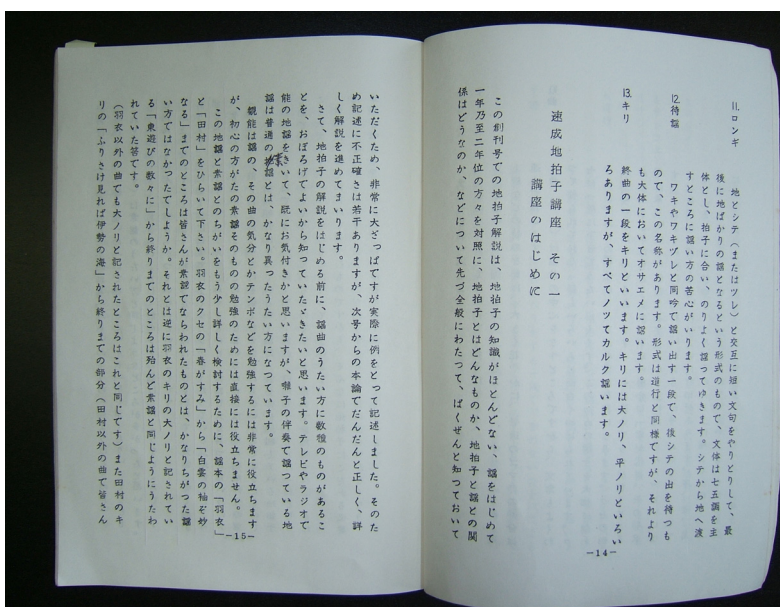 11. ロンギ
地とシテ(またはツレ)と交互に短い文句をやりとりして、最
後に地ばかりの謡となるという形式のもので、文体は七五調を主
体とし、拍子に合い、のりよく謡ってゆきます。シテから地へ渡
すところに謡い方の苦心がいります。
12. 待謡
ワキやワキヅレと同吟で謡い出す一段で、後シテの出を待つも
ので、この名称があります。形式は道行と同様ですが、それより
も大体においてオサエメに謡います。
13. キリ
終曲の一段をキリといいます。キリには大ノリ、平ノリといろい
ろありますが、すべてノッてカルク謡います。
速成地拍子講座 その一
講座のはじめに
この創刊号での地拍子解説は、地拍子の知識がほとんどない、謡をはじめて
一年乃至二年位の方々を対照に、地拍子とはどんなものか、地拍子と謡との関
係はどうなのか、などについて先づ全般にわたって、ばくぜんと知っておいて
—14—
いただくため、非常に大ざっぱですが実際に例をとって記述しました。そのた
め記述に不正確さは若干ありますが、次号からの本論でだんだんと正しく、詳
しく解説を進めてまいります。
さて、地拍子の解説をはじめる前に、謡曲のうたい方に数種のものがあるこ
とを、おぼろげでよいから知っていたゞきたいと思います。テレビやラジオで
能の地謡をきいて、既にお気付きかと思いますが、囃子の伴奏で謡っている地
謡は普通の素謡とは、かなり異ったうたい方になっています。
観能は謡の、その曲の気分とかテンポなどを勉強するには非常に役立ちます
が、初心の方がたの素謡そのものの勉強のためには直接には役立ちません。
この地謡と素謡とのちがいをもう少し詳しく検討するために、謡本の「羽衣」
と「田村」をひらいて下さい。羽衣のクセの「春がすみ」から「白雲の袖ぞ妙
なる」までのところは皆さんが素謡でならわれたものとは、かなりちがった謡
い方ではなかったでしょうか。それとは逆に羽衣のキリの大ノリと記されてい
る「東遊びの数々に」から終りまでのところは殆んど素謡と同じようにうたわ
れていた筈です。
(羽衣以外の曲でも大ノリと記されたところはこれと同じです)また田村のキ
リの「ふりさけ見れば伊勢の海」から終りまでの部分(田村以外の曲で皆さん
—15—